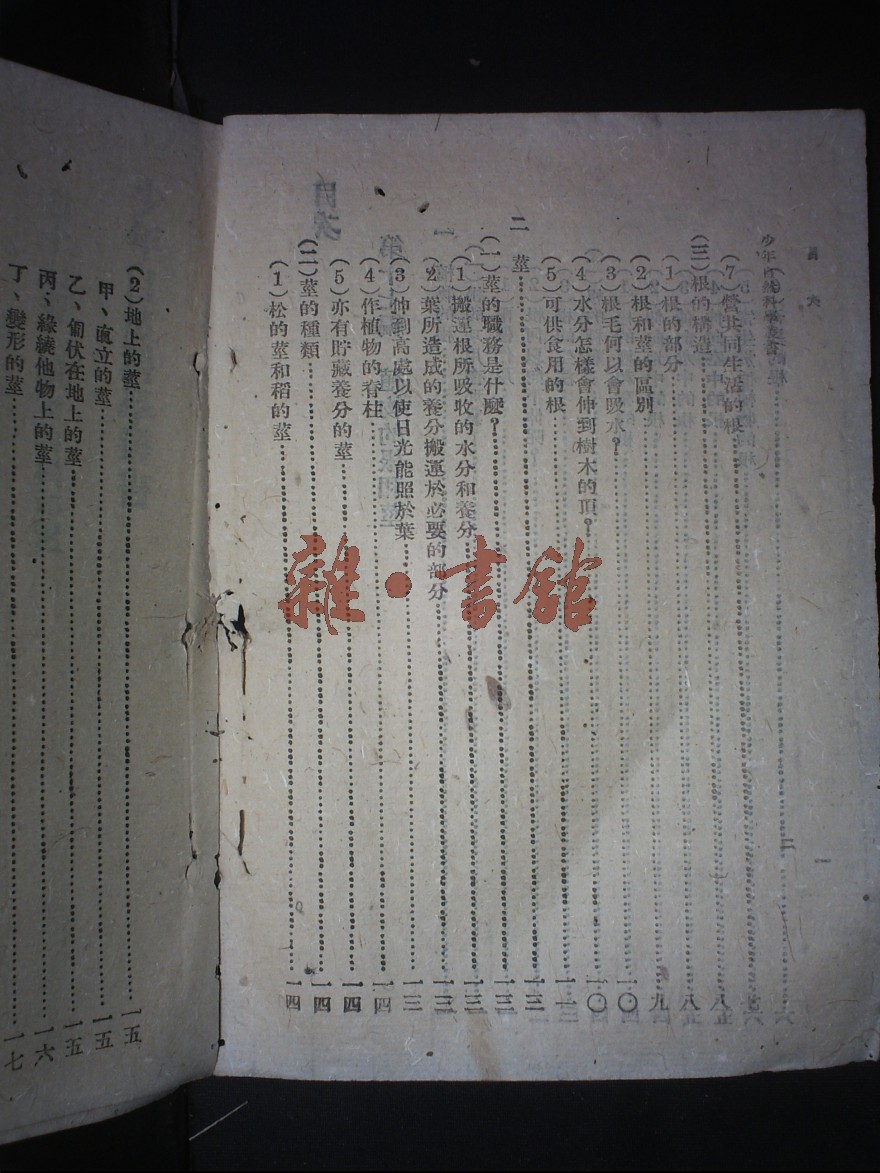 (7)營共同生活的根 七
(三)根的構造 八
(1)根的部分 八
(2)根和莖的區別 九
(3)根毛何以會吸水？ 一〇
(4)水分怎樣會伸到樹木的頂？ 一〇
(5)可供食用的根 一一
二 莖 一三
(一)莖的職務是什麼？ 一三
(1)搬運根所吸收的水分和養分 一三
(2)葉所造成的養分搬運於必要的部分 一三
(3)伸到高處以使日光能照於葉 一三
(4)作植物的脊柱 一四
(5)亦有貯藏養分的莖 一四
(二)莖的種類 一四
(1)松的莖和稻的莖 一四
(2)地上的莖 一五
甲、直立的莖 一五
乙、匍伏在地上的莖 一五
丙、緣繞他物上的莖 一六
丁、變形的莖 一七
雜·書館